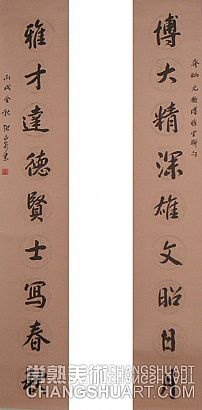 博大精深雄文昭日月
雅才達德賢士寫春秋
丙戌金秋
常熟美術 CHANGSHUART
CHANGSHUART.COM